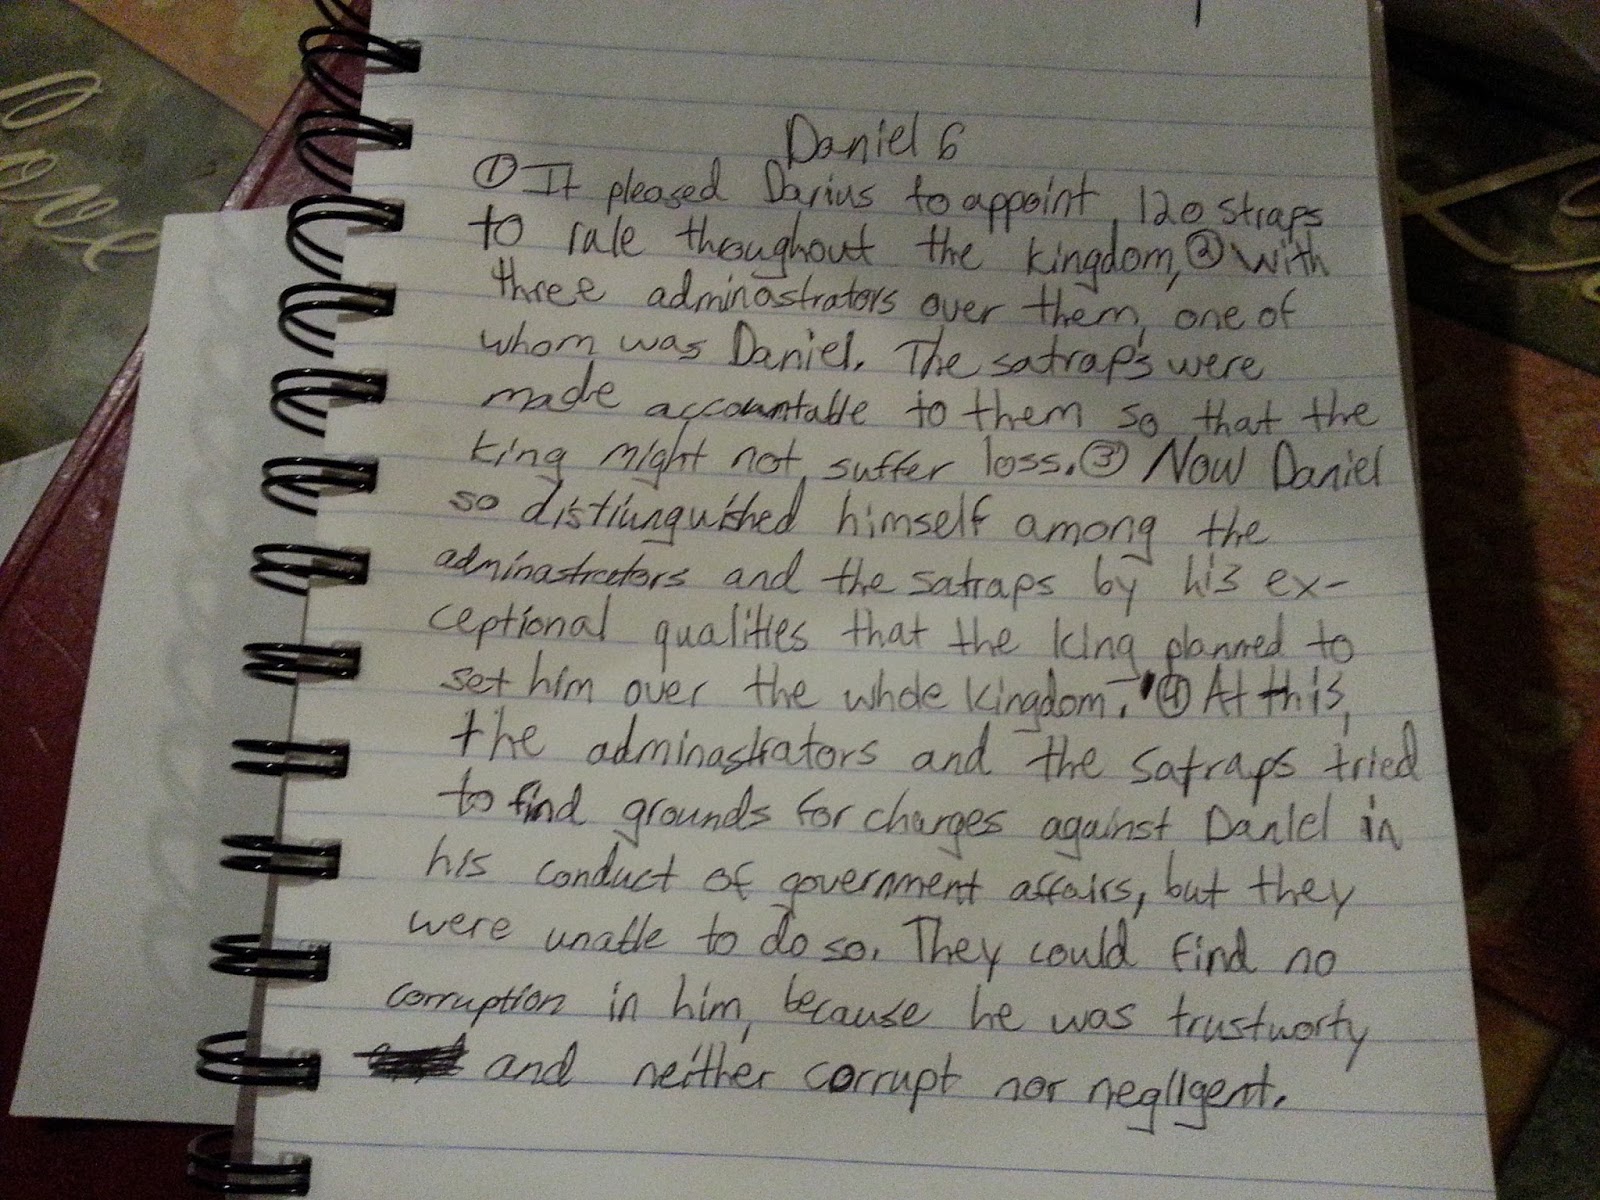 Daniel 6
① It pleased Darius to appoint 120 straps
to rule throughout the kingdom, ② with
three adminastrators over them, one of
whom was Daniel. The satraps were
made accountable to them so that the
king might not suffer loss. ③ Now Daniel
so distiunguished himself among the
adminastrators and the satraps by his ex-
ceptional qualities that the king planned to
set him over the whole kingdom. ④ At this,
the adminastrators and the satraps tried
to find grounds for charges against Daniel in
his conduct of government affairs, but they
were unable to do so. They could find no
corruption in him, because he was trustworty
and neither corrupt nor negligent.
love